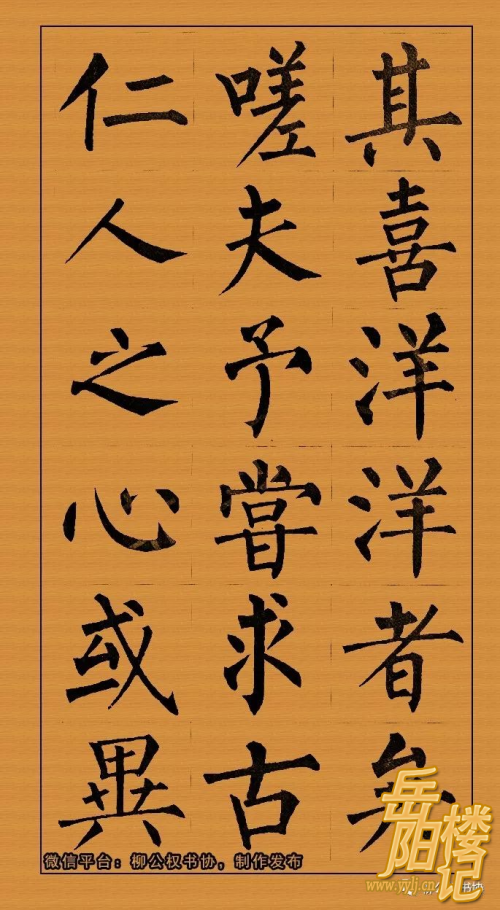 其喜洋洋者矣
嗟夫予嘗求古
仁人之心或異
微信平台：柳公权书协，制作发布
岳阳楼记
www.yylj.cn